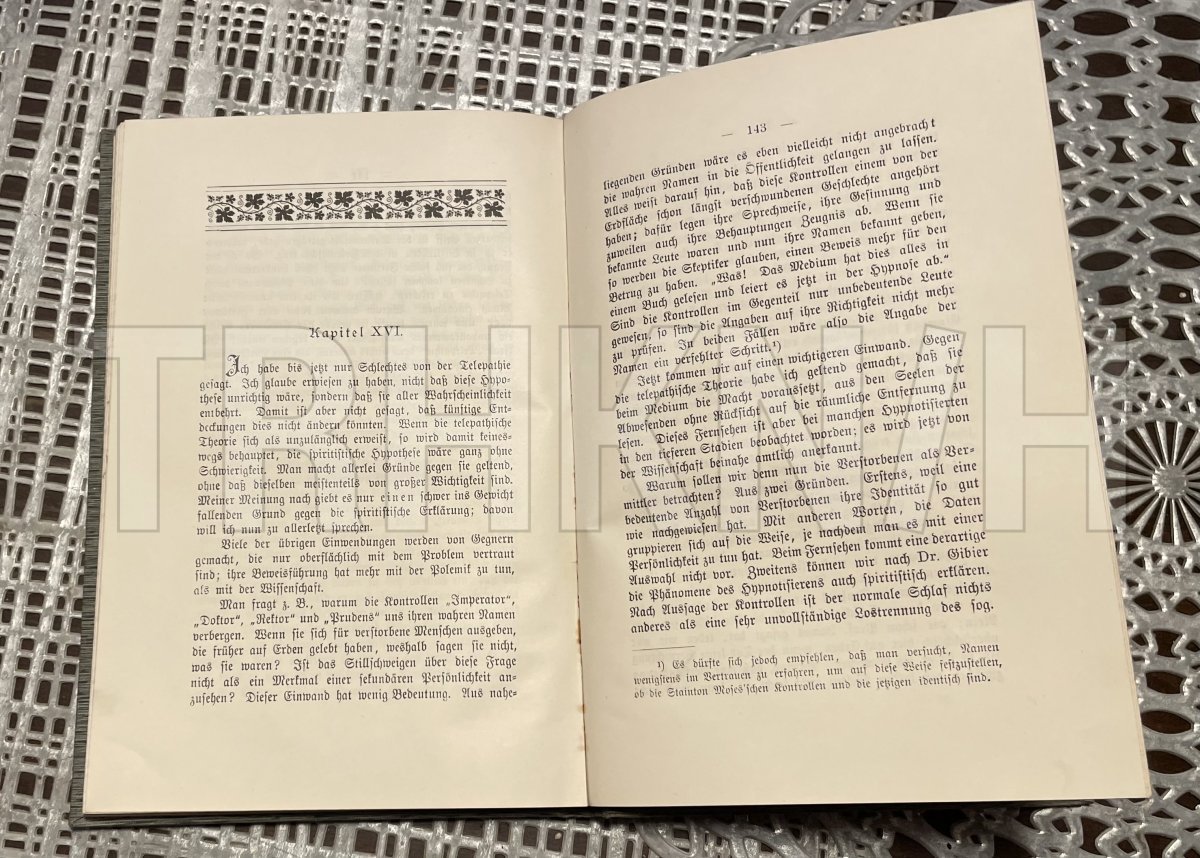 Kapitel XVI.
Ich habe bis jetzt nur Schlechtes von der Telepathie
gesagt. Ich glaube erwiesen zu haben, nicht daß diese Hypo-
these unrichtig wäre, sondern daß sie aller Wahrscheinlichkeit
entbehrt. Damit ist aber nicht gesagt, daß künftige Ent-
deckungen dies nicht ändern könnten. Wenn die telepathische
Theorie sich als unzulänglich erweist, so wird damit keines-
wegs behauptet, die spiritistische Hypothese wäre ganz ohne
Schwierigkeit. Man macht allerlei Gründe gegen sie geltend,
ohne daß dieselben mestenteils von großer Wichtigkeit sind.
Meiner Meinung nach giebt es nur einen schwer ins Gewicht
fallenden Grund gegen die spiritistische Erklärung; davon
will ich nun zu allerletzt sprechen.
Viele der übrigen Einwendungen werden von Gegnern
gemacht, die nur oberflächlich mit dem Problem vertraut
sind; ihre Beweisführung hat mehr mit der Polemik zu tun,
als mit der Wissenschaft.
Man fragt z. B., warum die Kontrollen „Imperator“,
„Doktor“, „Rektor“ und „Prudens“ uns ihren wahren Namen
verbergen. Wenn sie sich für verstorbene Menschen ausgeben,
die früher auf Erden gelebt haben, weshalb sagen sie nicht,
was sie waren? Ist das Stillschweigen über diese Frage
nicht als ein Merkmal einer sekundären Persönlichkeit an-
zusehen? Dieser Einwand hat wenig Bedeutung. Aus nahe-
— 143 —
liegenden Gründen wäre es eben vielleicht nicht angebracht
die wahren Namen in die Öffentlichkeit gelangen zu lassen.
Alles weist darauf hin, daß diese Kontrollen einem von der
Erdfläche schon längst verschwundenen Geschlechte angehört
haben; dafür legen ihre Sprechweise, ihre Gesinnung und
zuweilen auch ihre Behauptungen Zeugnis ab. Wenn sie
bekannte Leute waren und nun ihre Namen bekannt geben,
so werden die Skeptiker glauben, einen Beweis mehr für den
Betrug zu haben. „Was! Das Medium hat dies alles in
einem Buch gelesen und leiert es jetzt in der Hypnose ab.“
Sind die Kontrollen im Gegenteil nur unbedeutende Leute
gewesen, so sind die Angaben auf ihre Richtigkeit nicht mehr
zu prüfen. In beiden Fällen wäre also die Angabe der
Namen ein verfehlter Schritt.¹)
Jetzt kommen wir auf einen wichtigeren Einwand. Gegen
die telepathische Theorie habe ich geltend gemacht, daß sie
beim Medium die Macht voraussetzt, aus den Seelen der
Abwesenden ohne Rücksicht auf die räumliche Entfernung zu
lesen. Dieses Fernsehen ist aber bei manchen Hypnotisierten
in den tieferen Stadien beobachtet worden; es wird jetzt von
der Wissenschaft beinahe amtlich anerkannt.
Warum sollen wir denn nun die Verstorbenen als Ver-
mittler betrachten? Aus zwei Gründen. Erstens, weil eine
bedeutende Anzahl von Verstorbenen ihre Identität so gut
wie nachgewiesen hat. Mit anderen Worten, die Daten
gruppieren sich auf die Weise, je nachdem man es mit einer
Persönlichkeit zu tun hat. Beim Fernsehen kommt eine derartige
Auswahl nicht vor. Zweitens können wir nach Dr. Gibier
die Phänomene des Hypnotisierens auch spiritistisch erklären.
Nach Aussage der Kontrollen ist der normale Schlaf nichts
anderes als eine sehr unvollständige Lostrennung des sog.
¹) Es dürfte sich jedoch empfehlen, daß man versucht, Namen
wenigstens im Vertrauen zu erfahren, um auf diese Weise festzustellen,
ob die Stainton Moses'schen Kontrollen und die jetzigen identisch sind.